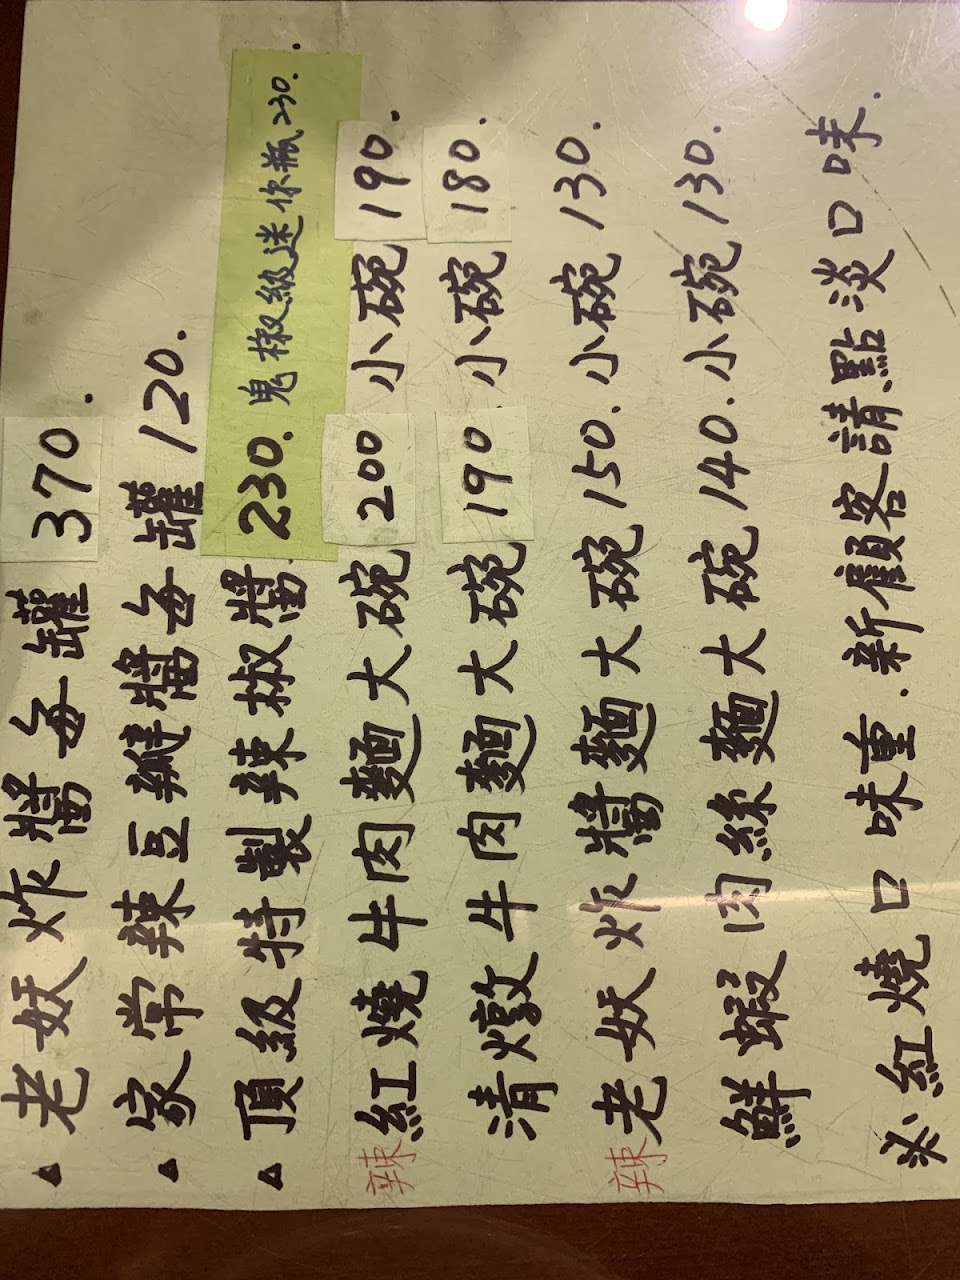 ▲老妖炸醬每罐370.
▲家常辣豆瓣醬每罐120.
▲頂級特製辣椒醬230.鬼椒級迷你瓶230.
辣紅燒牛肉麵大碗200小碗190.
清燉牛肉麵大碗190小碗180.
辣老妖炸醬麵大碗150.小碗130.
鮮蝦肉絲麵大碗140.小碗130.
※紅燒口味重.新顧客請點淡口味.